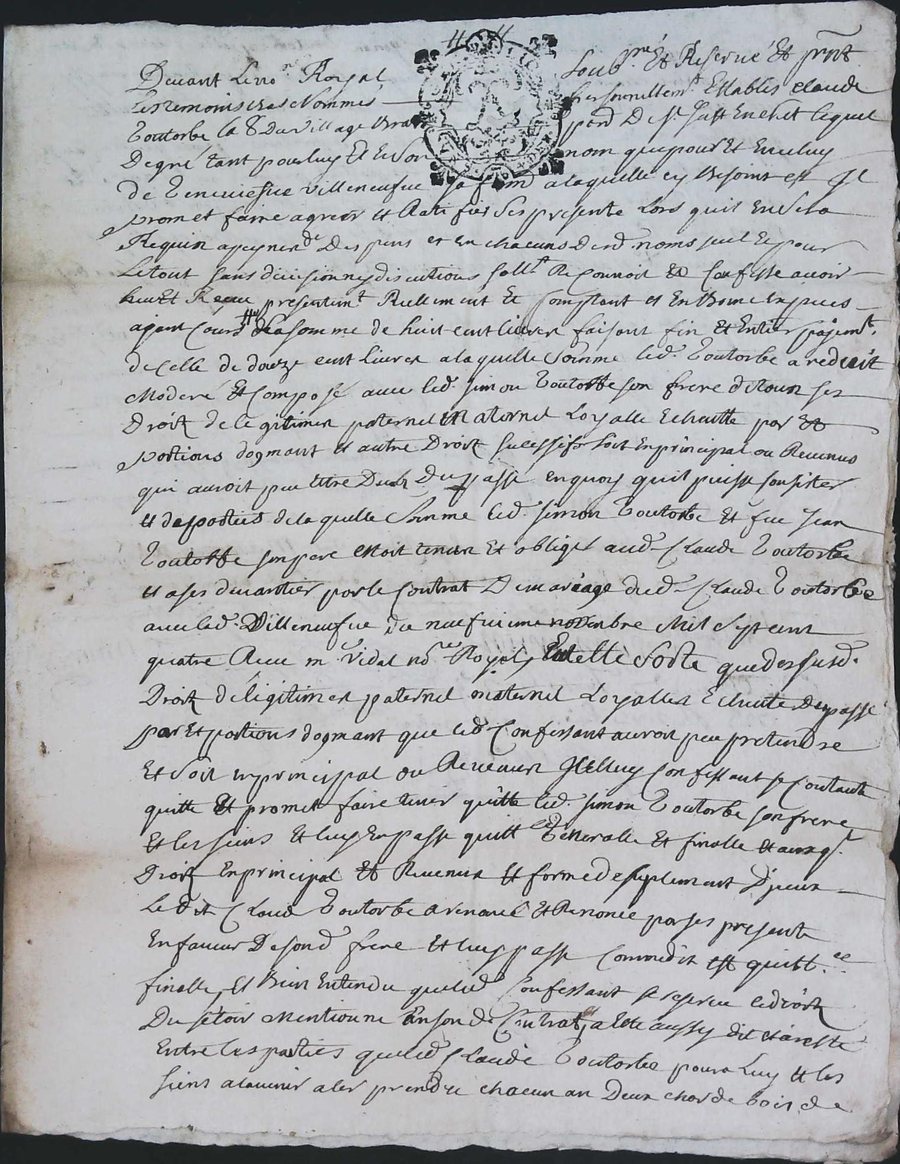 Devant Le no.re Royal soub.né Et Reservé Et p.nt
Les temoins bas Nommés personnellem.t Establis Claude
Toutorbe Lab.r Du village
De gré tant pour luy Et En son nom que pour Et En celuy
de villeneufve sa fem.e a laquelle ey Besoint est Il
promet faire agreer et Ratiffier Ses presente Lors quil En sera
Requis a peyne de Despens et en chacuns Desd. noms seul Et pour
Le tout sans division ny discutions soll.t Reconnoit Et Confesse avoir
heu Et Receu presentem.t Reellement Et Comptant et En Bonne Espices
ayant Cours La somme de huit cent livres faisant fin Et Entier payem.t
de Celle de douze cent Livres a laquelle Somme led. Toutorbe a reduit
Moderé Et Composé avec led. simon Toutorbe son frere de tous ses
Droit de Legitimes paternel Maternel Loyalle Echutte par Et
portions dogmant et autre Droit sucessifs soit En principal ou Revenus
qui auroit peu Estre Deub Du passé en quoy quil puisse consister
et de laquelle Somme led. simon Toutorbe Et feu Jean
Toutorbe son pere Estoit tenus Et obligés aud. Claude Toutorbe
et par le Contrat De mariage dud. Claude Toutorbe
avec lad. Villeneufve du neufvieme novembre Mil Sept cent
quatre Receu m.e Vidal no.re Royal, En telle Sorte que desusd.
Droit de legitimes paternel maternel Loyalles Echutte Du passé
par Et portions dogmant que led. Confessant auroit peu pretendre
Et soit En principal ou Revenus Icelluy Confessant se Contante
quitte Et promet faire tenir quitte led. simon Toutorbe son frere
Et les siens Et luy En passe quitt.ce Generalle Et finalle Et ausq.ls
Droit En principal Et Revenus Et forme de suplement Diceux
Le dit Claude Toutorbe a renoncé Et Renonce par ses presente
En faveur De sond. frere Et luy passe Comme dit est quitt.ce
finalle, Et Bien Entendu que led. Confessant se reserve le droit
Du Mentionné En son d. Contrat, a Esté aussy dit Et aresté
Entre les parties que led. Claude Toutorbe pour Luy Et les
siens a lavenir aler prendre chacun an Deux char de bois de